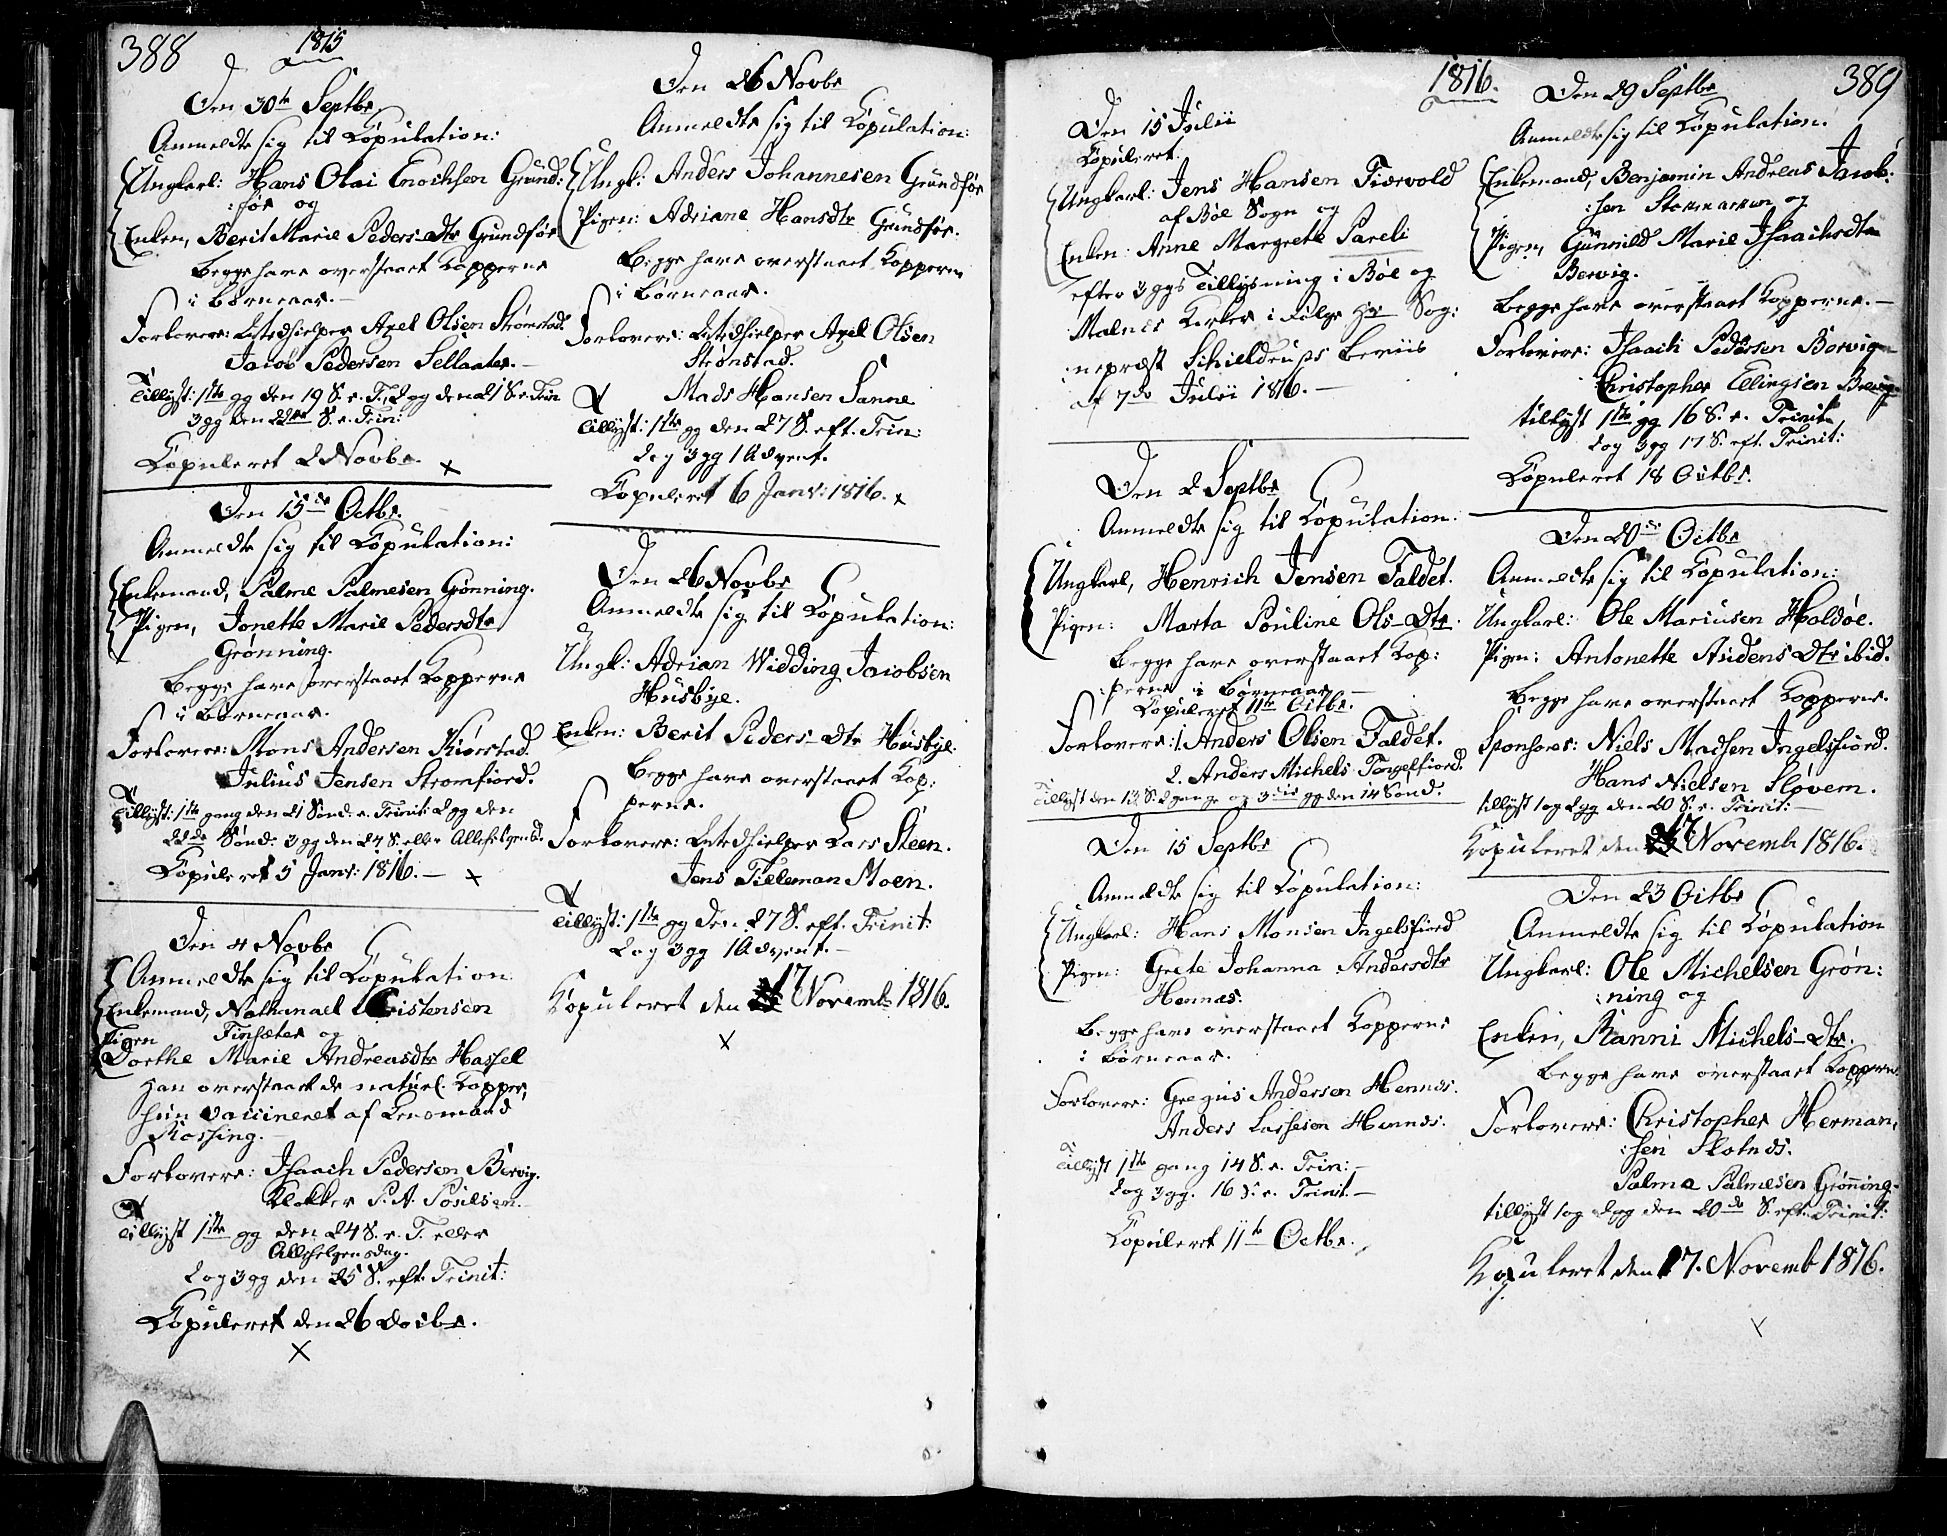 388
1815
Den 30te Septbr
Anmeldte sig til Copulation:
Ungkarl: Hans Olai Enochsen Grund:
:før og
Enken, Berit Marie Peders-dtr Grundfør
Begge have overstaaet Kopperne
i Børneaar.—
Forlovere: Lehnsmand Axel Olsen Strømstad.
Jacob Pedersen Sellaater.—
Tillyst: 1ste gg den 19 S. e. T., 2 og den 21 S. e. Trin
3 gg den 22de S. e. Trin:
Copuleret 2 Novbr. x
Den 15de Octbr.
Anmeldte sig til Copulation:
Enkemand, Palme Palmesen Grønning.
Pigen, Jonette Marie Pedersdtr
Grønning.
Begge have overstaaet Kopperne
i Børneaar.
Forlovere: Mons Andersen Kiørstad.
Julius Jensen Strømfiord.
Tillyst: 1ste gang den 21 Sønd. e. Trinit: 2 gg den
22de Sønd: 3 gg den 24 S. eller Allehelgensd.
Copuleret 5 Janv: 1816.— x
Den 4 Novbr
Anmeldte sig til Copulation
Enkemand, Nathanael Christensen
Finsæter og
Pigen
Dorthe Marie Andreasdtr Hassel
Han overstaaet de naturl. Kopper,
hun vaccineret af
Rossing.
Forlovere: Isaach Pedersen Bervig.
Klokker P. A. Poulsen.
Tillyst 1ste gg den 24 S. e. T. eller
Allehelgensdag.
2 og 3 gg den 25 S. eft. Trinit:
Copuleret den 26 Decbr.
x
Den 26 Novbr
Anmeldte sig til Copulation:
Ungk: Anders Johannesen Grundfør
Pigen: Adriane Hansdtr Grundfør.
Begge have overstaaet Kopperne
i Børneaar.
Forlovere: Axel Olsen
Strømstad.
Mads Hansen Sanne
Tillyst: 1ste gg den 27 S. eft. Trin:
2 og 3 gg 1 Advent.
Copuleret 6 Janv: 1816. x
Den 26 Novbr
Anmeldte sig til Copulation:
Ungk: Adrian Widding Jacobsen
Husbye.
Enken: Berit Peders-dtr Husbye.
Begge have overstaaet Kop:
perne.
Forlovere: Lars Steen.
Jens Tilleman Moen.
Tillyst: 1ste gg den 27 S. eft. Trinit:
2 og 3 gg 1 Advent.—
Kopuleret den 17 Novemb 1816.
x
1816.
389
Den 15 Julii
Copuleret:
Ungkarl: Jens Hansen Tiærvold
af Bøe Sogn og
Enken: Anne Margrethe Pareli
efter 3 ggs Tillysning i Bøe og
Malnes Kirker i Følge Hr Sog:
:nepræst Schieldrups Beviis
af 7de Julii 1816.—
Den 2 Septbr
Anmeldte sig til Copulation:
Ungkarl, Henrich Jensen Faldet.
Pigen: Marta Pouline Ols-Dtr.
Begge have overstaaet Kop:
:perne i Børneaar.—
Copuleret 11te Octbr.
Forlovere: 1. Anders Olsen Faldet.
2. Anders Michels. Tengelfiord.
Tillyst den 13 S. 2 gange og 3die gg den 14 Sønd.
Den 15 Septbr
Anmeldte sig til Copulation:
Ungkarl: Hans Monsen Ingelsfiord
Pigen: Grete Johanna Andersdtr
Hennes.
Begge have overstaaet Kopperne
i Børneaar.
Forlovere: Gregius Andersen Hennes.
Anders Lassesen Hennes.
Tillyst 1ste gang 14 S. e. Trin:—
2 og 3 gg. 16 S. e. Trinit.—
Copuleret 11te Octbr.
Den 29 Septbr
Anmeldte sig til Copulation.
Enkemand, Benjamin Andreas Jacob:
:sen Stokmarkun og
Pigen, Gunnild Marie Isaachsdtr
Bervig.
Begge have overstaaet Kopperne.—
Forlovere: Isaach Pedersen Borvig
Christopher Ellingsen Brevig
tillyst 1ste gg 16 S. e. Trinit.
2 og 3 gg 17 S. eft. Trinit:
Copuleret 18 Octbr.
Den 20de Octbr
Anmeldte sig til Copulation:
Ungkarl: Ole Mariusen Holdøe.
Pigen: Antonette Audens Dtr ibid.
Begge have overstaaet Kopperne.
Sponsores: Niels Madsen Ingelsfiord.
Hans Nielsen Sløvem.
tillyst 1 og 2 gg den 20 S. e. Trinit:—
Kopuleret den 17 Novemb 1816.
Den 23 Octbr
Anmeldte sig til Copulation
Ungkarl: Ole Michelsen Grøn:
:ning og
Enken, Ranni Michels-Dtr.
Begge have overstaaet Kopperne
Forlovere: Christopher Herman,
:sen Slotnes.
Palma Palmesen Grønning.
tillyst 1 og 2 gg den 20de S. eft. Trinit:
Kopuleret den 17. Novemb 1816.
x